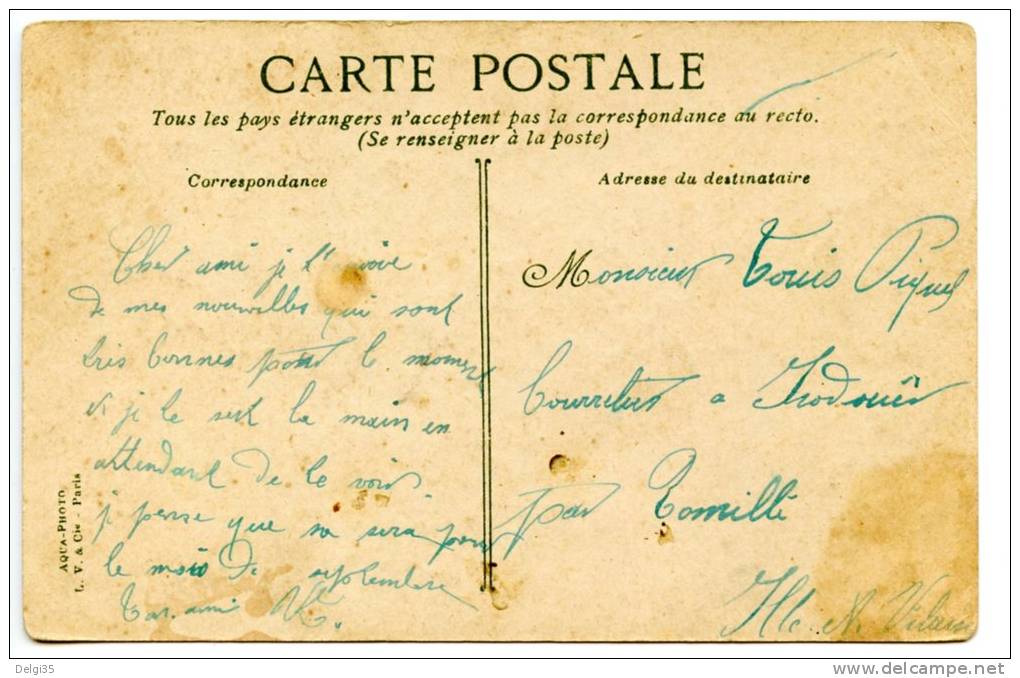 CARTE POSTALE
Tous les pays étrangers n'acceptent pas la correspondance au recto.
(Se renseigner à la poste)
Correspondance
Cher ami je t'
de mes nouvelles qui sont
très bonnes pour le moment
et je te la main en
attendant de te voir
je pense que sa sera pour
le mois de septembre
ton ami
Adresse du destinataire
Monsieur Louis Piquel
Bourrelier a Irodouër
par Romillé
Ille et Vilaine
AQUA-PHOTO
L. V. & Cie - Paris
Delgi35
www.delcampe.net